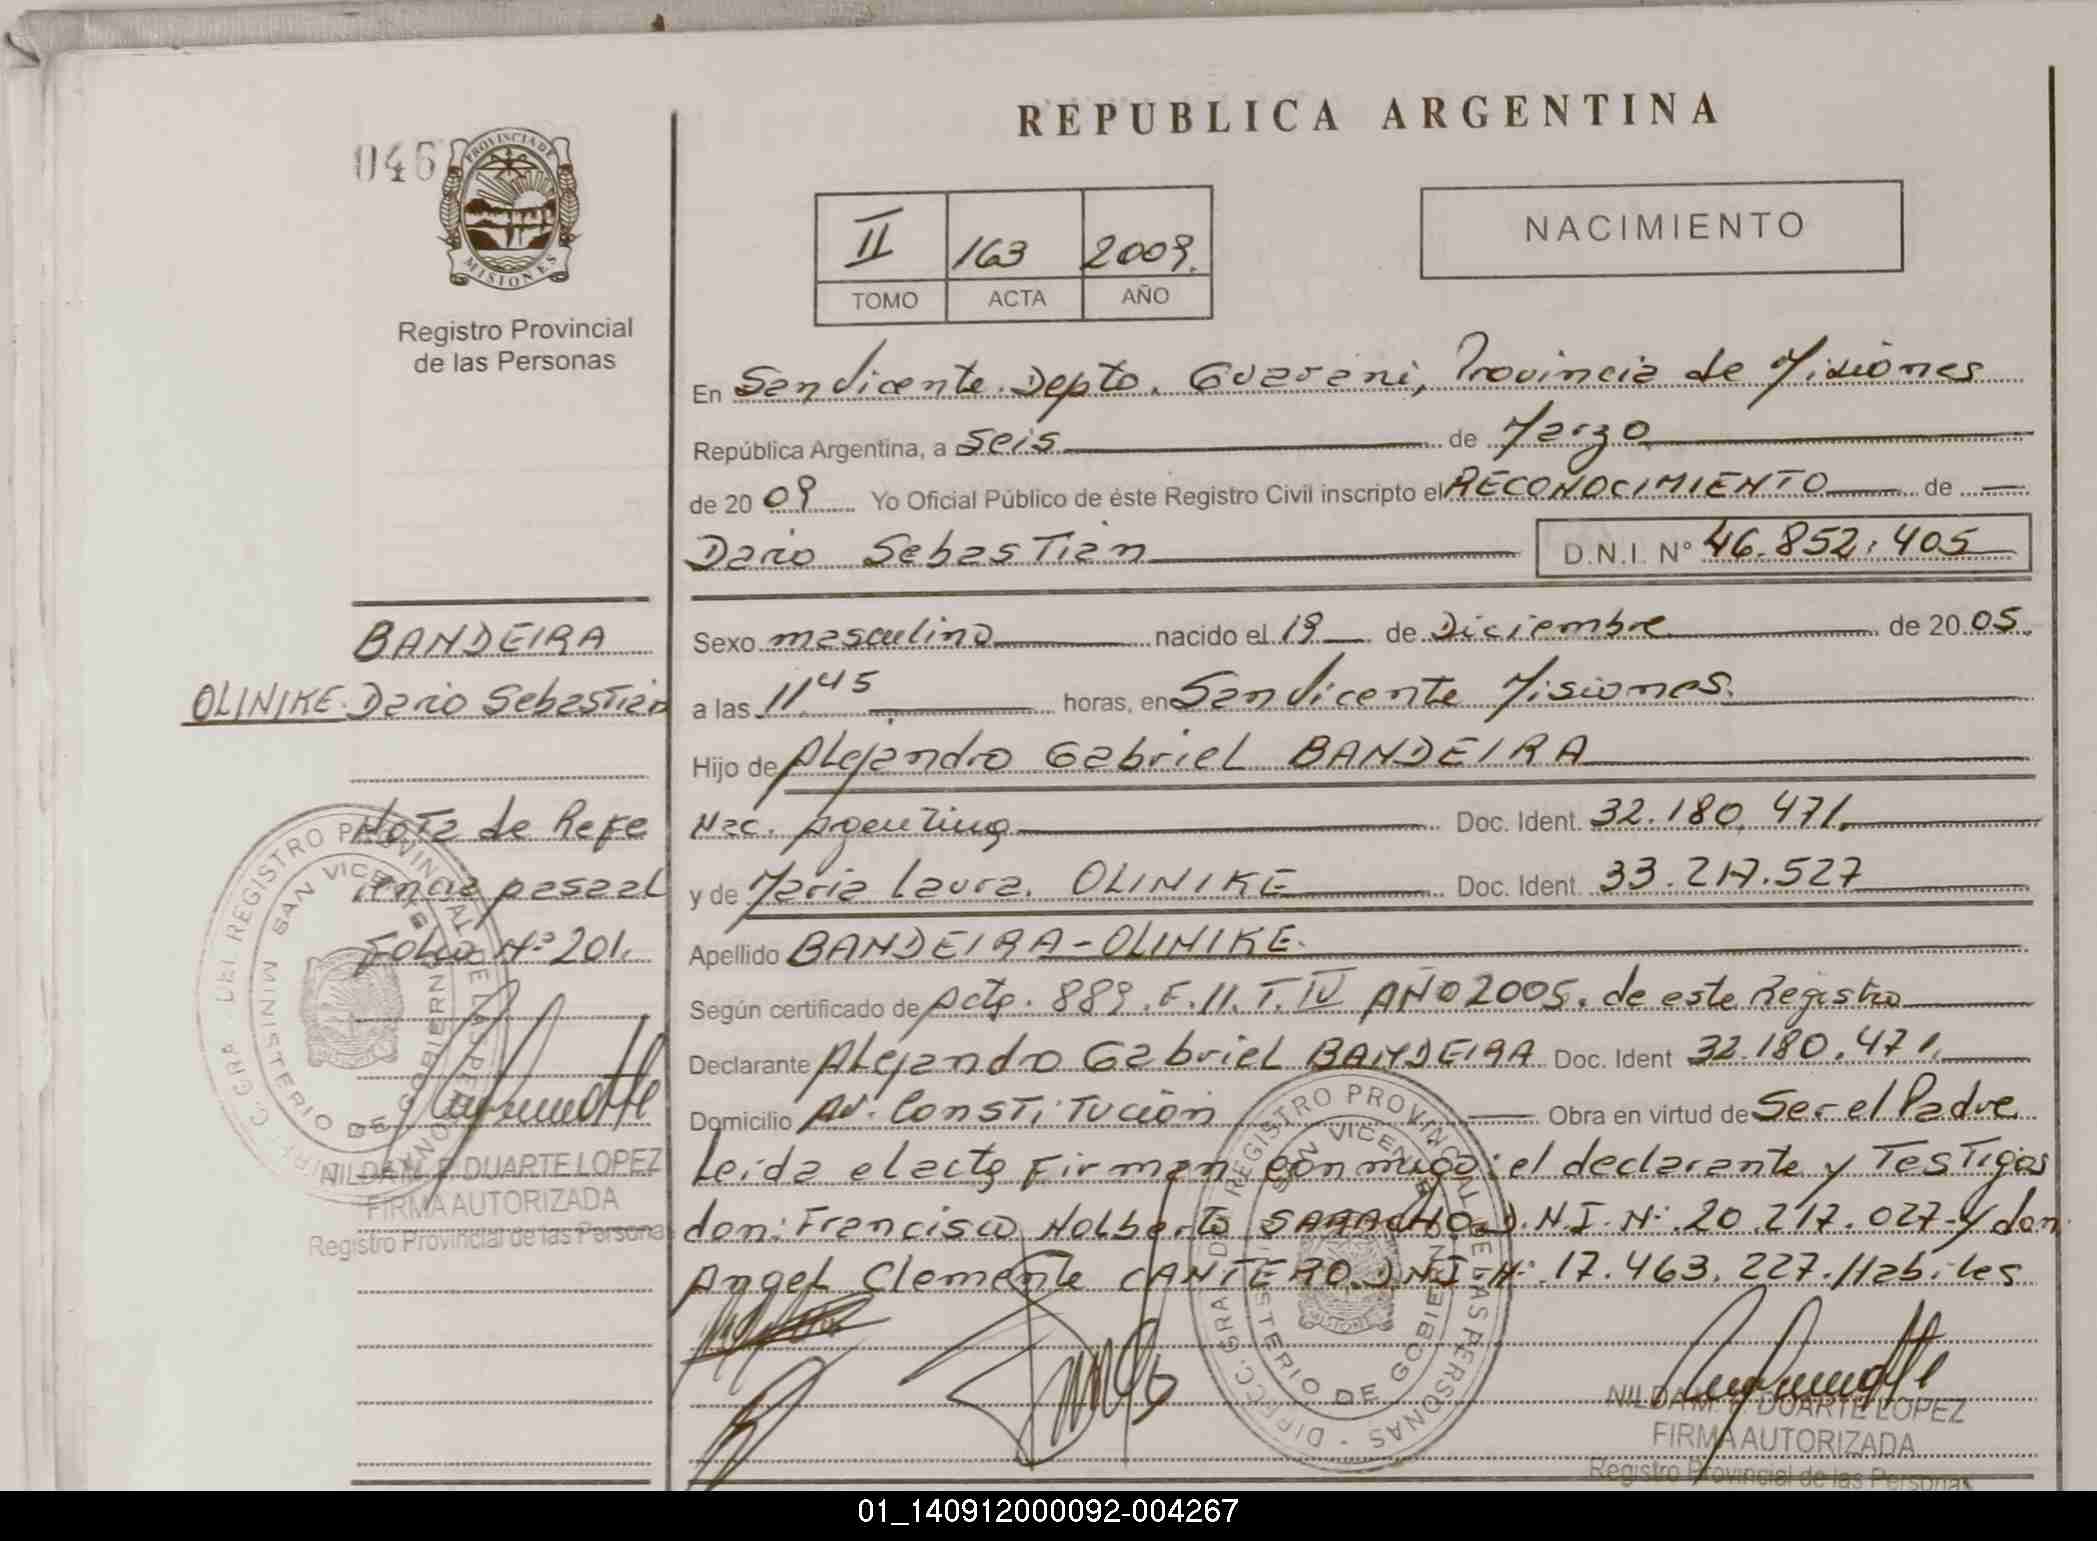 REPUBLICA ARGENTINA
046
PROVINCIA DE
MISIONES
Registro Provincial
de las Personas
II 163 2009.
TOMO ACTA AÑO
NACIMIENTO
En San Vicente. Depto. Guarani, Provincia de Misiones
República Argentina, a seis de Marzo
de 20 09 Yo Oficial Público de éste Registro Civil inscripto el RECONOCIMIENTO de
Dario Sebastian D.N.I. Nº 46.852.405
BANDEIRA
OLINIKE. Dario Sebastian
Sexo masculino nacido el 19 de Diciembre de 20 05.
a las 11 45 horas, en San Vicente Misiones.
Hijo de Alejandro Gabriel BANDEIRA
Nac. Argentina Doc. Ident. 32.180.471.
y de Maria Laura. OLINIKE Doc. Ident. 33.217.527
Apellido BANDEIRA-OLINIKE.
Según certificado de Acta. 889. F. 11. T. IV AÑO 2005. de este Registro
Declarante Alejandro Gabriel BANDEIRA Doc. Ident 32.180.471.
Domicilio Av. Constitución Obra en virtud de Ser el Padre
Leida el acta Firman conmigo: el declarante y Testigos
don: Francisco Nolberto SARACHO. D.N.I. Nº 20.217.027-y don
Angel Clemente CANTERO. DNI Nº 17.463.227. Habiles
Nota de Refe
rencia pasa al
Folio Nº 201.
DIRECC. GRAL. DEL REGISTRO PROVINCIAL DE LAS PERSONAS
SAN VICENTE
MINISTERIO DE GOBIERNO
NILDA M. F. DUARTE LOPEZ
FIRMA AUTORIZADA
Registro Provincial de las Personas
DIRECC. GRAL. DEL REGISTRO PROVINCIAL DE LAS PERSONAS
SAN VICENTE
MINISTERIO DE GOBIERNO
MISIONES
NILDA M. F. DUARTE LOPEZ
FIRMA AUTORIZADA
Registro Provincial de las Personas
01_140912000092-004267